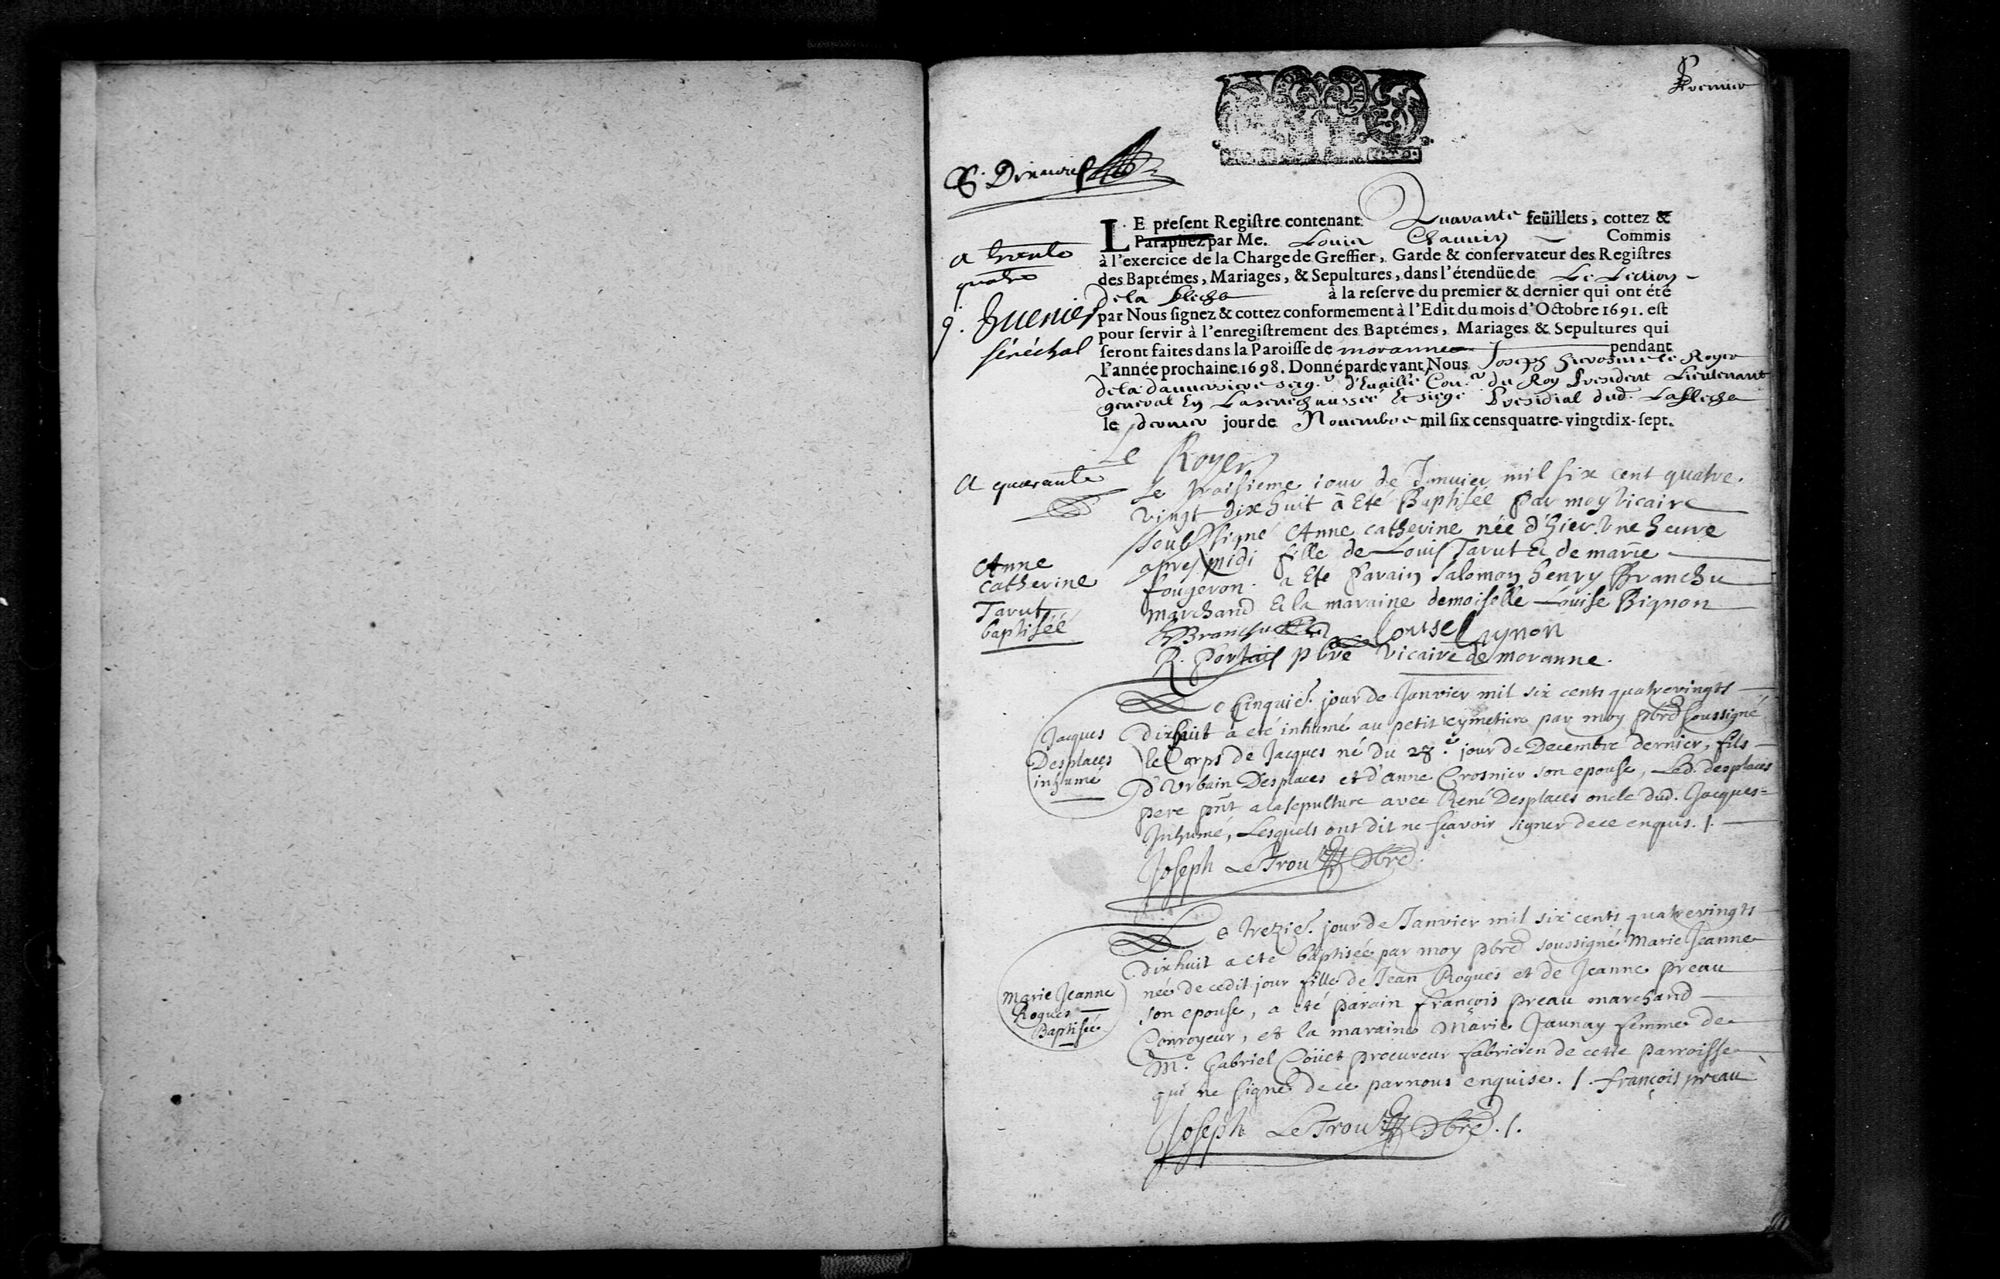 Premier
LE present Registre contenant Quarante feüillets, cottez &
Paraphez par Me. Louis Chauvin Commis
à l'exercice de la Charge de Greffier, Garde & conservateur des Registres
des Baptémes, Mariages, & Sepultures, dans l'étendüe de Le Lection
de la fleche à la reserve du premier & dernier qui ont été
par Nous signez & cottez conformement à l'Edit du mois d'Octobre 1691. est
pour servir à l'enregistrement des Baptémes, Mariages & Sepultures qui
seront faites dans la Paroisse de moranne pendant
l'année prochaine 1698. Donné pardevant Nous Joseph Hierosme le Royer
de la dauversiere seigr d'Euaille Conser du Roy President Lieutenant
general En La senechaussee Et siege Presidial dud. Lafleche
le dernier jour de Novembre mil six cens quatre-vingt dix-sept.
Le Royer
a trente
quatre
seneschal
a quarante
Le troisieme iour de Januier mil six cent quatre
vingt dix huit à Eté Baptisée Par moy vicaire
soubsigné Anne catherine née d'hier Vne heure
apres midi fille de Louis Tarut & de marie
fougeron. a Eté Parain Salomon henry Branchu
marchand & la maraine demoiselle Louise Bignon
Anne
catherine
Tarut
baptisée
HBranchu Louise Bignon
R. Portais pbre vicaire de moranne.
Le Cinquie. jour de Janvier mil six cents quatrevingts
dixhuit a eté inhumé au petit cymetiere par moy pbre soussigné
le Corps de Jacques né du 28.e jour de Decembre dernier, fils
d'Urbain Desplaces et d'Anne Crosnier son epouse, Led. desplaces
pere pnt a la sepulture avec René Desplaces oncle dud. Jacques
Inhumé, Lesquels ont dit ne sçavoir signer de ce enquis. /.
Jacques
Desplaces
inhumé
Joseph LeTrou pbre.
Le trezie. jour de Janvier mil six cents quatrevingts
dixhuit a eté baptisée par moy pbre soussigné Marie Jeanne
née de cedit jour fille de Jean Rogues et de Jeanne preau
son epouse, a eté parain françois preau marchand
Conroyeur, et la maraine Marie Jaunay femme de
M.e Gabriel Coüet procureur fabricien de cette parroisse
qui ne signe de ce par nous enquise. /. françois preau
Marie Jeanne
Rogues
Baptisée
Joseph LeTrou pbre. /.